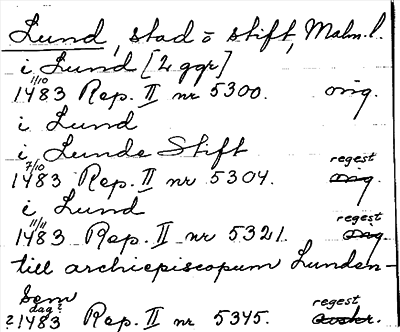 Lund, stad o stift, Malm. l.
i Lund [2 ggr]
1/10
1483 Rep. II nr 5300. orig.
i Lund
i Lunde Stift
7/10 regest
1483 Rep. II nr 5304. orig.
i Lund
11/11 regest
1483 Rep. II nr 5321. orig.
till archiepiscopum Lunden-
sem
dag? regest
?1483 Rep. II nr 5345. avskr.